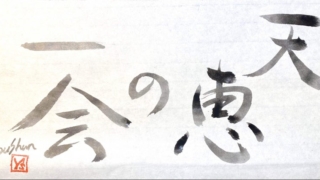 天恵の一会